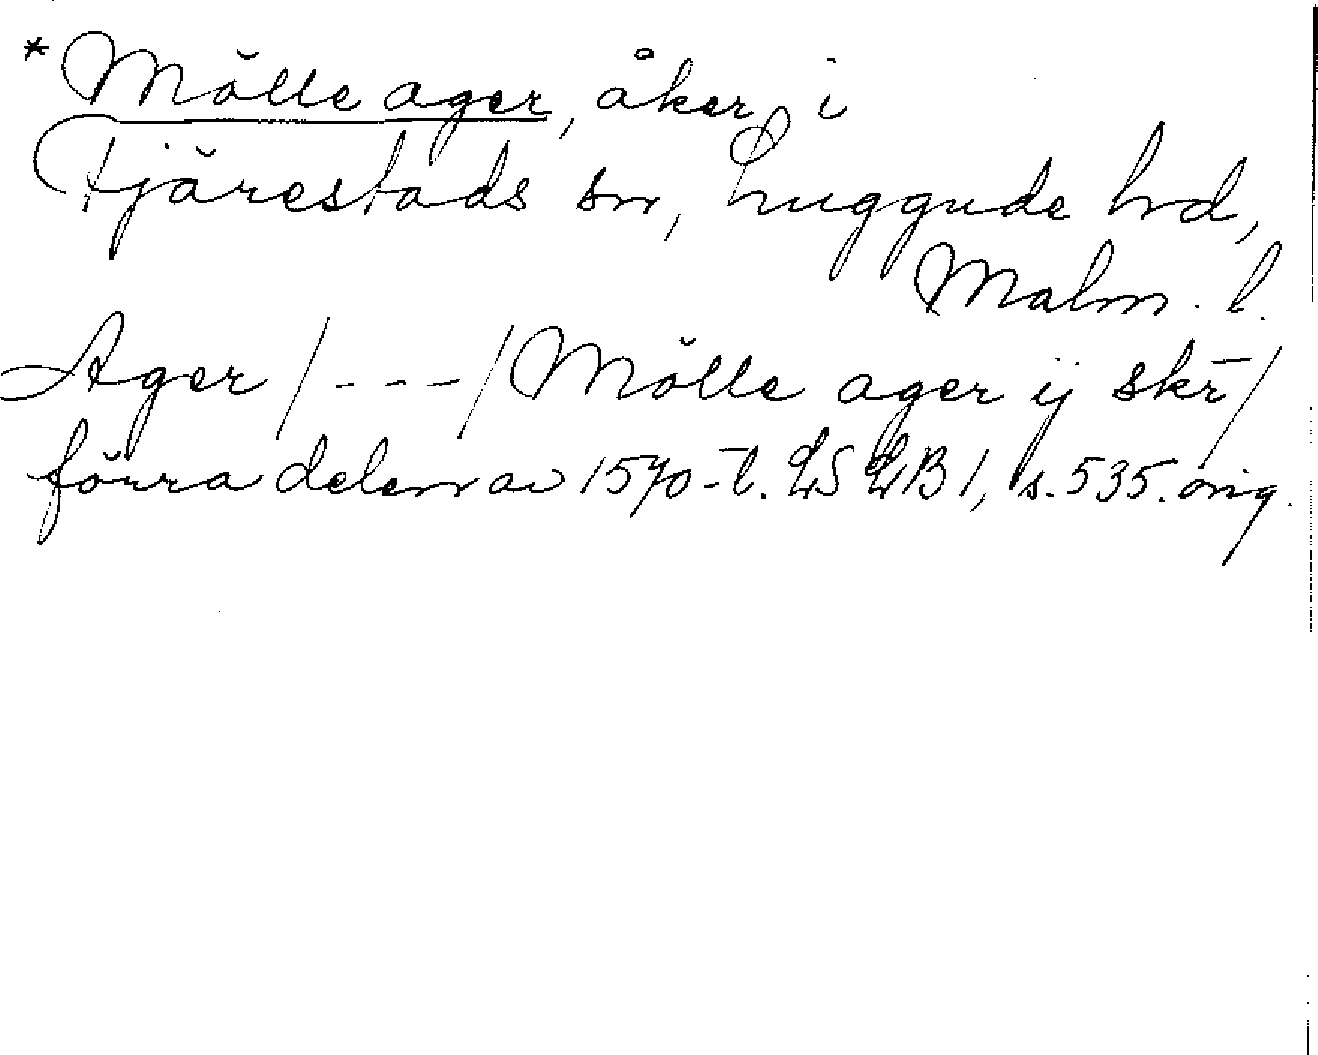 * Mölle ager, åker i
Fjärestads sn, Luggude hd,
Malm. l.
Ager /---/ Mölle ager ij skr̄/
förra delen av 1570-t. LSLB 1, s. 535. orig.